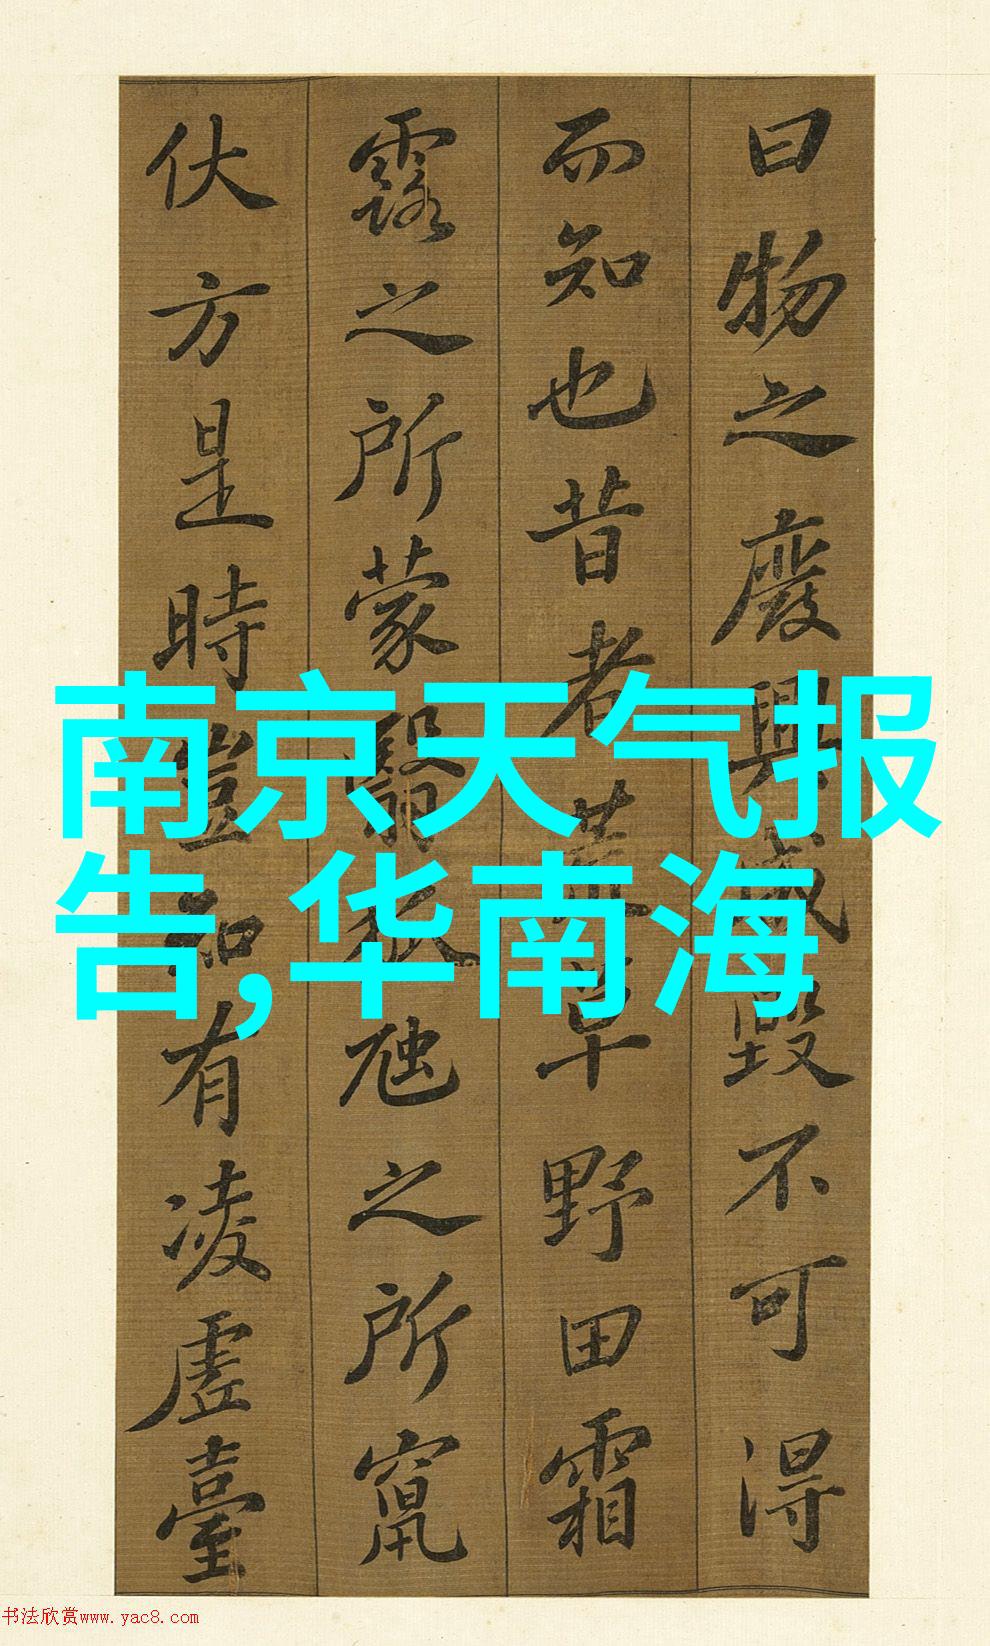 曰物之廢興成毀不可得
而知也昔者荒草野田霜
露之所蒙翳狐虺之所竄
伏方是時豈知有凌虛臺
南京天气报
告,华南海
书法欣赏www.yac8.com